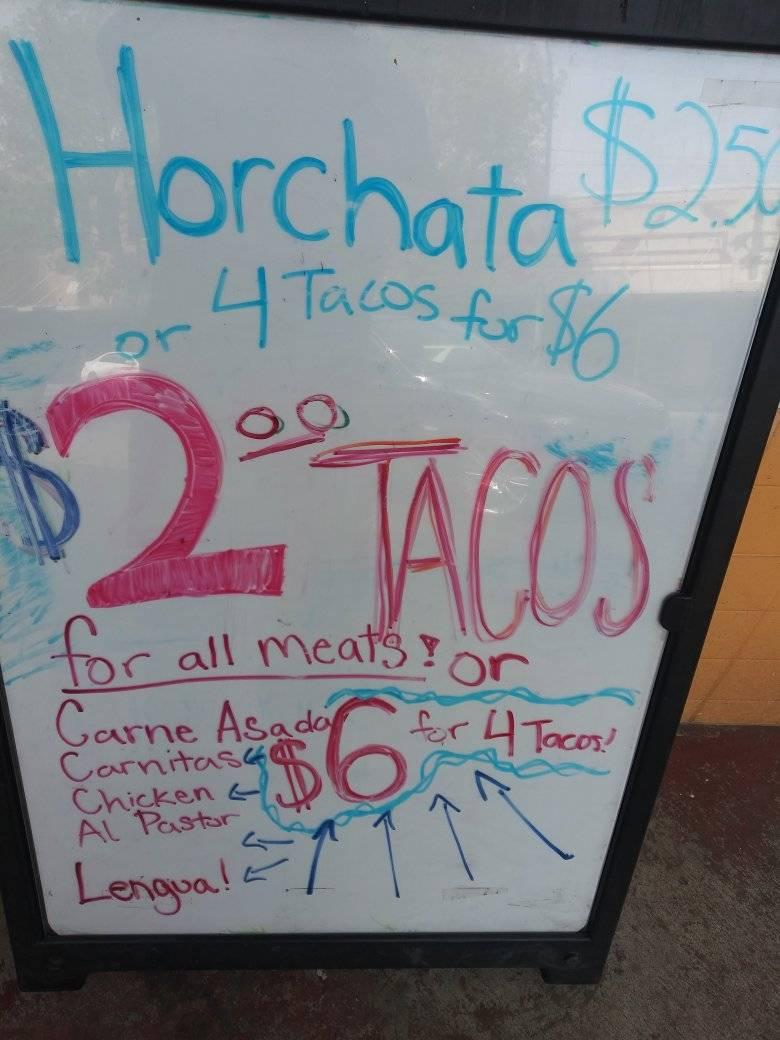 Horchata $2.50
or 4 Tacos for $6
$2.00 TACOS
for all meats! or
Carne Asada $6 for 4 Tacos!
Carnitas
Chicken
Al Pastor
Lengua!